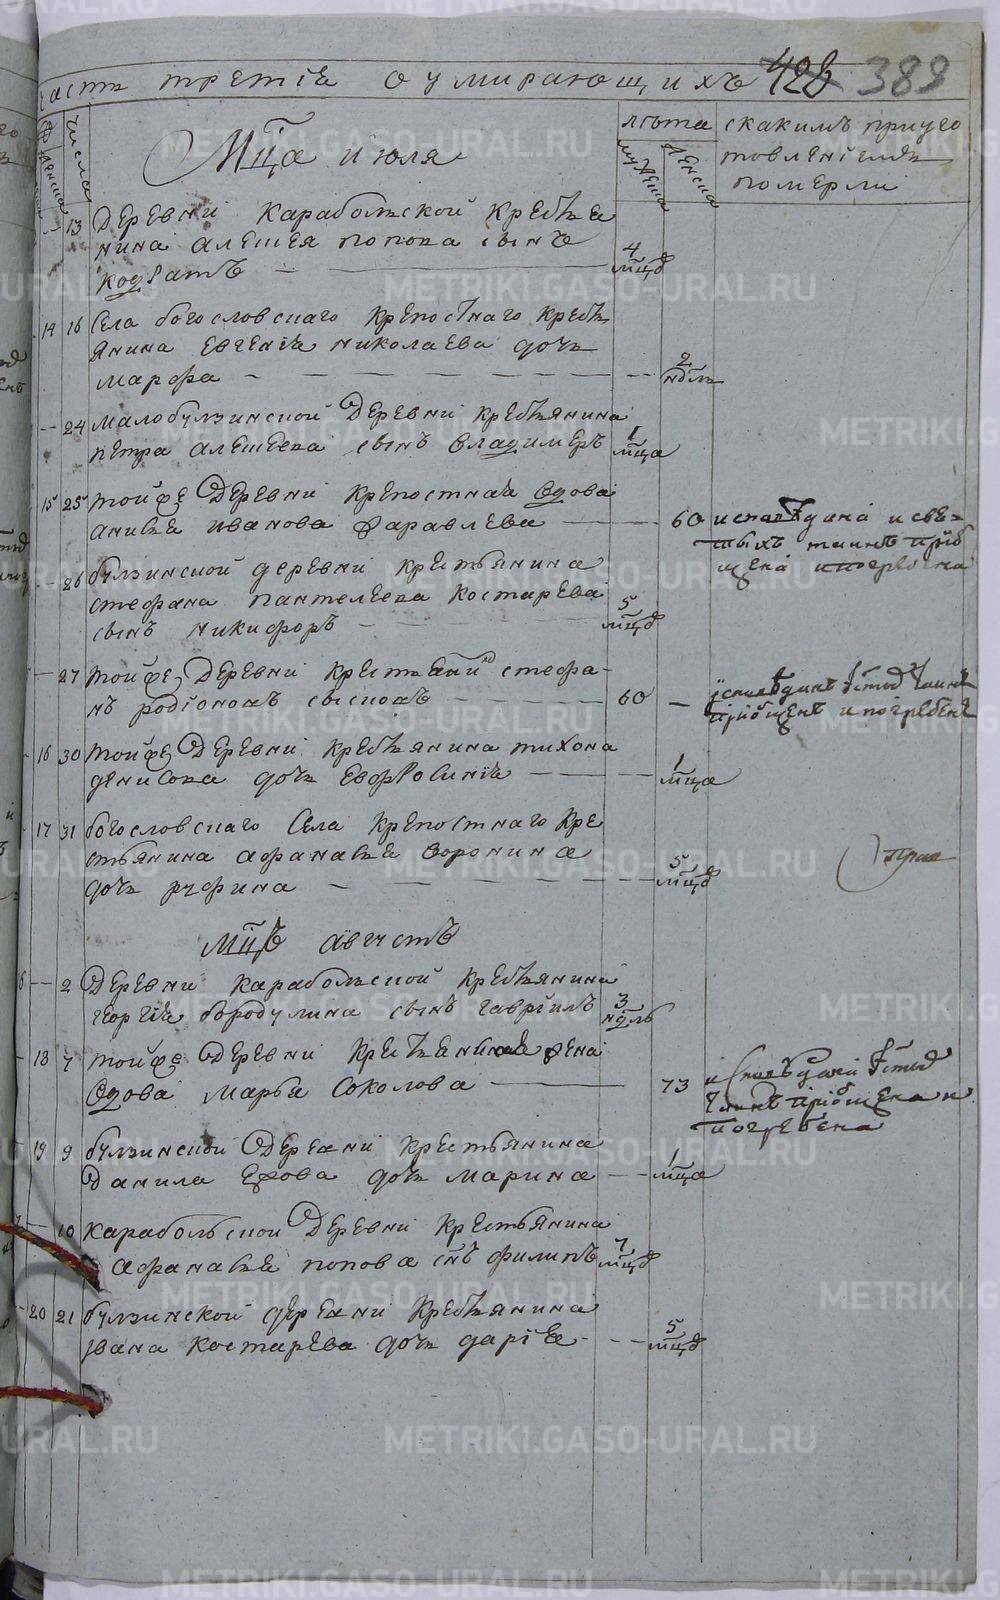 часть третія о умирающихъ 428 389
числа
лѣта
скакимъ пригото
товленіемъ
померли
Мца июля
13 Деревни карабольской крестья
нина алеѯея попова сынъ
кодратъ 4 мцд
14 16 Села богословскаго крепостнаго кресть
янина Евгеніа николаева дочь
марфа 2 ндль
24 малобулзинской Деревни крестьянина
петра алеѯеева сынъ владимеръ 1 мца
15 25 тойже Деревни крепостная вдова
анисья иванова 60 исповѣдана и свя
тыхъ таинъ пріоб
щена и погребена
26 булзинской деревни крестьянина
стефана пантелеева костарева
сынъ никифоръ 5 мцд
27 тойже Деревни крестьянин стефа
нъ родіоновъ 60 исповѣданъ таинъ
пріобщенъ и погребенъ
16 30 тойже Деревни крестьянина тихона
денисова дочь Евфросинія 1 мца
17 31 богословскаго Села крепостнаго кре
стьянина афанасья воронина
дочь руфина 5 мцд
Мцъ августъ
2 Деревни карабольской крестьянина
георгіа бородулина сынъ гавріилъ 3 ндль
18 7 тойже Деревни жена
вдова марья соколова 73 исповѣдана
таинъ пріобщена и
погребена
19 9 булзинской Деревни крестьянина
данила дочь марина 1 мца
10 карабольской Деревни крестьянина
афанасья попова снъ филипъ 7 мцд
20 21 булзинской деревни крестьянина
ивана костарева дочь дарія 5 мцд
METRIKI.GASO-URAL.RU